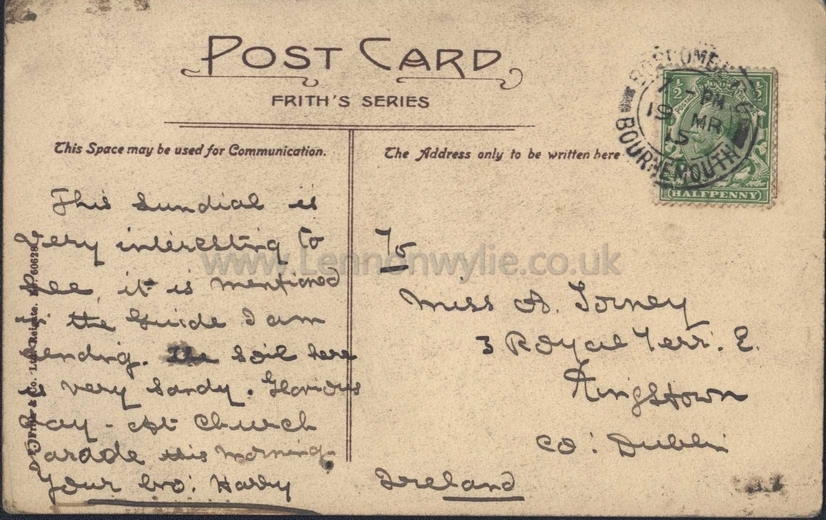 POST CARD
FRITH'S SERIES
This Space may be used for Communication.
The Address only to be written here
BOSCOMBE
7 - PM
19 MR
15
BOURNEMOUTH
½ ½
HALFPENNY
This Sundial is
very interesting to
see, it is mentioned
in the Guide I am
sending. The Soil here
is very Sandy. Glorious
day - At Church
Parade this morning.
Your bro: Harry
To
Miss A. Torney
3 Royal Terr. E.
Kingstown
Co: Dublin
Ireland
Frith & Co. Ltd. Reigate. No. 60628
www.Lennonwylie.co.uk